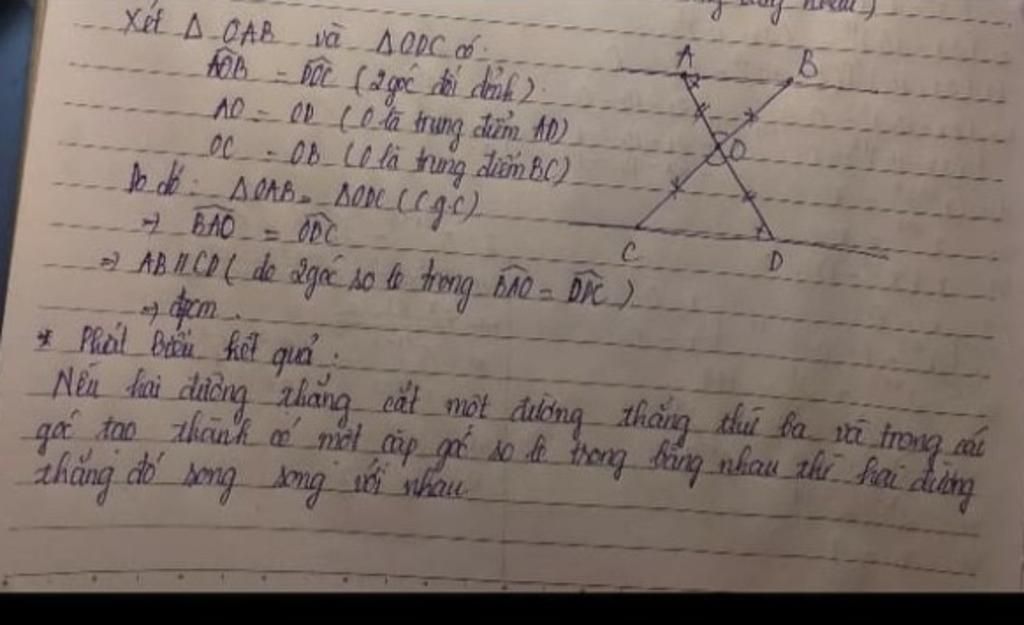 Xét Δ OAB và Δ ODC có:
A
B
AOB = DOC (2 góc đối đỉnh)
AO = OD (O là trung điểm AD)
O
OC = OB (O là trung điểm BC)
Do đó: ΔOAB = ΔODC (cgc)
⇒ BAO = ODC
C
D
⇒ AB // CD (do 2 góc so le trong BAO =
⇒ đpcm.
* Phát Biểu kết quả:
Nếu hai đường thẳng cắt một đường thẳng thứ ba và trong các
góc tạo thành có một cặp góc so le trong bằng nhau thì hai đường
thẳng đó song song với nhau